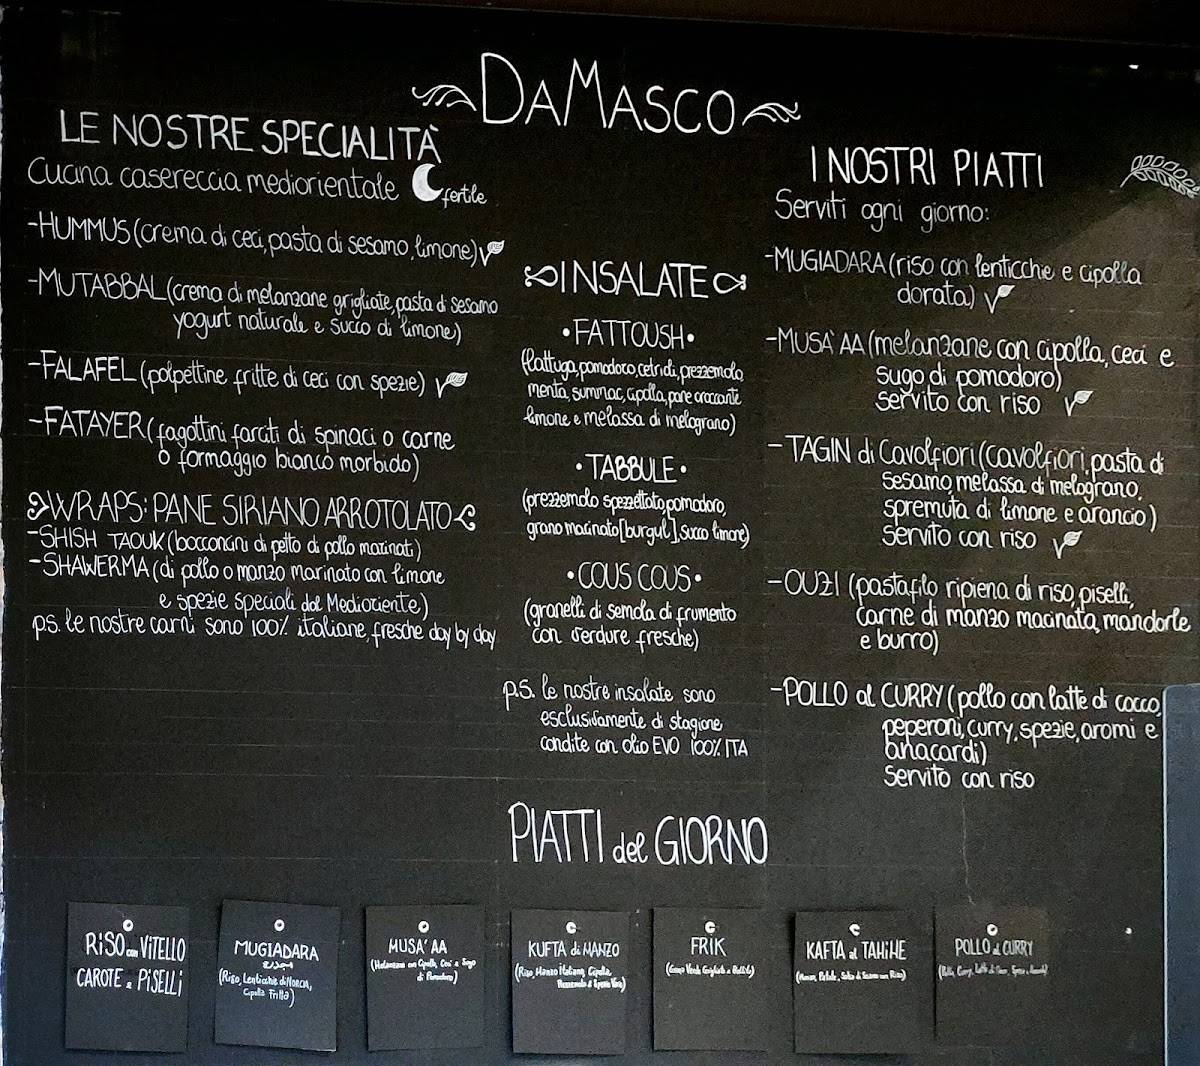 DAMASCO
LE NOSTRE SPECIALITÀ
Cucina casereccia mediorientale
fertile
-HUMMUS (crema di ceci, pasta di sesamo, limone)
-MUTABBAL (crema di melanzane grigliate, pasta di sesamo
yogurt naturale e succo di limone)
-FALAFEL (polpettine fritte di ceci con spezie)
-FATAYER (fagottini farciti di spinaci o carne
o formaggio bianco morbido)
WRAPS: PANE SIRIANO ARROTOLATO
-SHISH TAOUK (bocconcini di petto di pollo marinati)
-SHAWERMA (di pollo o manzo marinato con limone
e spezie speciali dal Medioriente)
p.s. le nostre carni sono 100% italiane, fresche day by day
INSALATE
•FATTOUSH•
(lattuga, pomodoro, cetrioli, prezzemolo,
menta, summac, cipolla, pane croccante
limone e melassa di melograno)
•TABBULE•
(prezzemolo spezzettato, pomodoro,
grano macinato [burgul], succo limone)
•COUS COUS•
(granelli di semola di frumento
con verdure fresche)
p.s. le nostre insalate sono
esclusivamente di stagione
condite con olio EVO 100% ITA
I NOSTRI PIATTI
Serviti ogni giorno:
-MUGIADARA (riso con lenticchie e cipolla
dorata)
-MUSA' AA (melanzane con cipolla, ceci e
sugo di pomodoro)
servito con riso
-TAGIN di Cavolfiori (cavolfiori, pasta di
sesamo, melassa di melograno,
spremuta di limone e arancio)
servito con riso
-OUZI (pastafilo ripiena di riso, piselli,
carne di manzo macinata, mandorle
e burro)
-POLLO al CURRY (pollo con latte di cocco,
peperoni, curry, spezie, aromi e
anacardi)
servito con riso
PIATTI del GIORNO
RISO con VITELLO
CAROTE e PISELLI
MUGIADARA
(Riso, Lenticchie di Norcia,
Cipolla Fritta)
MUSA' AA
(Melanzane con Cipolla, Ceci e Sugo
di Pomodoro)
KUFTA di MANZO
(Riso, Manzo Italiano, Cipolla,
Prezzemolo e Spezie Varie)
FRIK
(Grano Verde Grigliato e Piselli)
KAFTA al TAHINE
(Manzo, Patate, Salsa di Sesamo con Riso)
POLLO al CURRY
(Pollo, Curry, Latte di Cocco, Spezie, Anacardi)